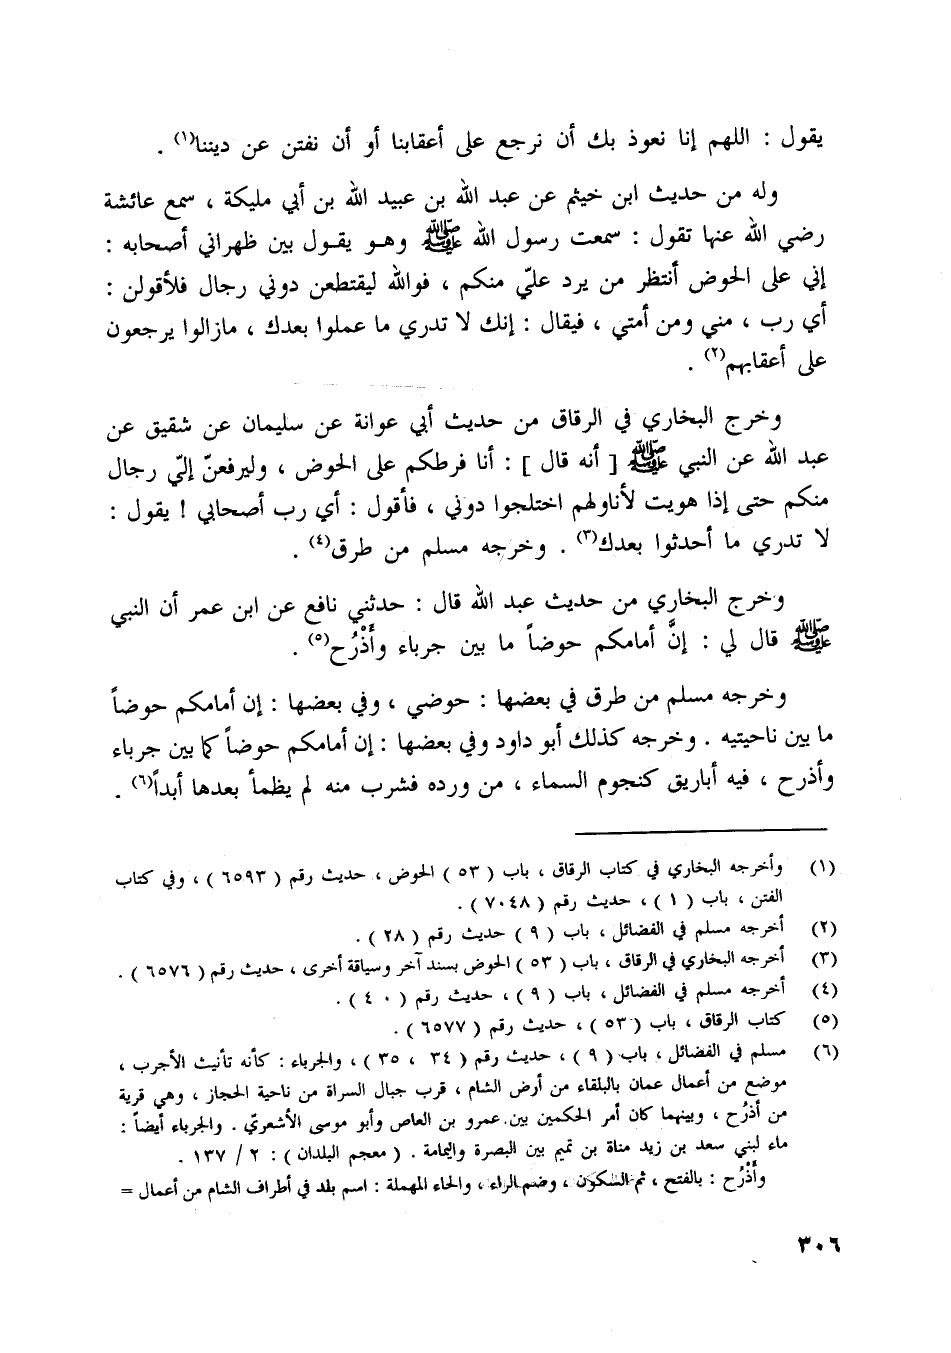 يقول : اللهم إنا نعوذ بك أن نرجع على أعقابنا أو أن نفتن عن ديننا(١) .
وله من حديث ابن خيثم عن عبد الله بن عبيد الله بن أبي مليكة ، سمع عائشة
رضي الله عنها تقول : سمعت رسول الله ﷺ وهـو يقـول بين ظهراني أصحابه :
إني على الحوض أنتظر من يرد عليّ منكم ، فوالله ليقتطعن دوني رجال فلأقولن :
أي رب ، مني ومن أمتي ، فيقال : إنك لا تدري ما عملوا بعدك ، مازالوا يرجعون
على أعقابهم(٢) .
وخرج البخاري في الرقاق من حديث أبي عوانة عن سليمان عن شقيق عن
عبد الله عن النبي ﷺ [ أنه قال ] : أنا فرطكم على الحوض ، وليرفعنّ إليّ رجال
منكم حتى إذا هويت لأناولهم اختلجوا دوني ، فأقول : أي رب أصحابي ! يقول :
لا تدري ما أحدثوا بعدك(٣) . وخرجه مسلم من طرق(٤) .
وخرج البخاري من حديث عبد الله قال : حدثني نافع عن ابن عمر أن النبي
ﷺ قال لي : إنَّ أمامكم حوضاً ما بين جرباء وأَذْرُح(٥) .
وخرجه مسلم من طرق في بعضها : حوضي ، وفي بعضها : إن أمامكم حوضاً
ما بين ناحيتيه . وخرجه كذلك أبو داود وفي بعضها : إن أمامكم حوضاً كما بين جرباء
وأذرح ، فيه أباريق كنجوم السماء ، من ورده فشرب منه لم يظمأ بعدها أبداً(٦) .
(١) وأخرجه البخاري في كتاب الرقاق ، باب ( ٥٣ ) الحوض ، حديث رقم ( ٦٥٩٣ ) ، وفي كتاب
الفتن ، باب ( ١ ) ، حديث رقم ( ٧٠٤٨ ) .
(٢) أخرجه مسلم في الفضائل ، باب ( ٩ ) حديث رقم ( ٢٨ ) .
(٣) أخرجه البخاري في الرقاق ، باب ( ٥٣ ) الحوض بسند آخر وسياقة أخرى ، حديث رقم ( ٦٥٧٦ ) .
(٤) أخرجه مسلم في الفضائل ، باب ( ٩ ) ، حديث رقم ( ٤٠ ) .
(٥) كتاب الرقاق ، باب ( ٥٣ ) ، حديث رقم ( ٦٥٧٧ ) .
(٦) مسلم في الفضائل ، باب ( ٩ ) ، حديث رقم ( ٣٤ ، ٣٥ ) ، والجرباء : كأنه تأنيث الأجرب ،
موضع من أعمال عمان بالبلقاء من أرض الشام ، قرب جبال السراة من ناحية الحجاز ، وهي قرية
من أذرُح ، وبينهما كان أمر الحكمين بين عمرو بن العاص وأبو موسى الأشعريّ . والجرباء أيضاً :
ماء لبني سعد بن زيد مناة بن تميم بين البصرة واليمامة . ( معجم البلدان ) : ٢ / ١٣٧ .
وأَذْرُح : بالفتح ، ثم السكون ، وضم الراء ، والحاء المهملة : اسم بلد في أطراف الشام من أعمال =
٣٠٦